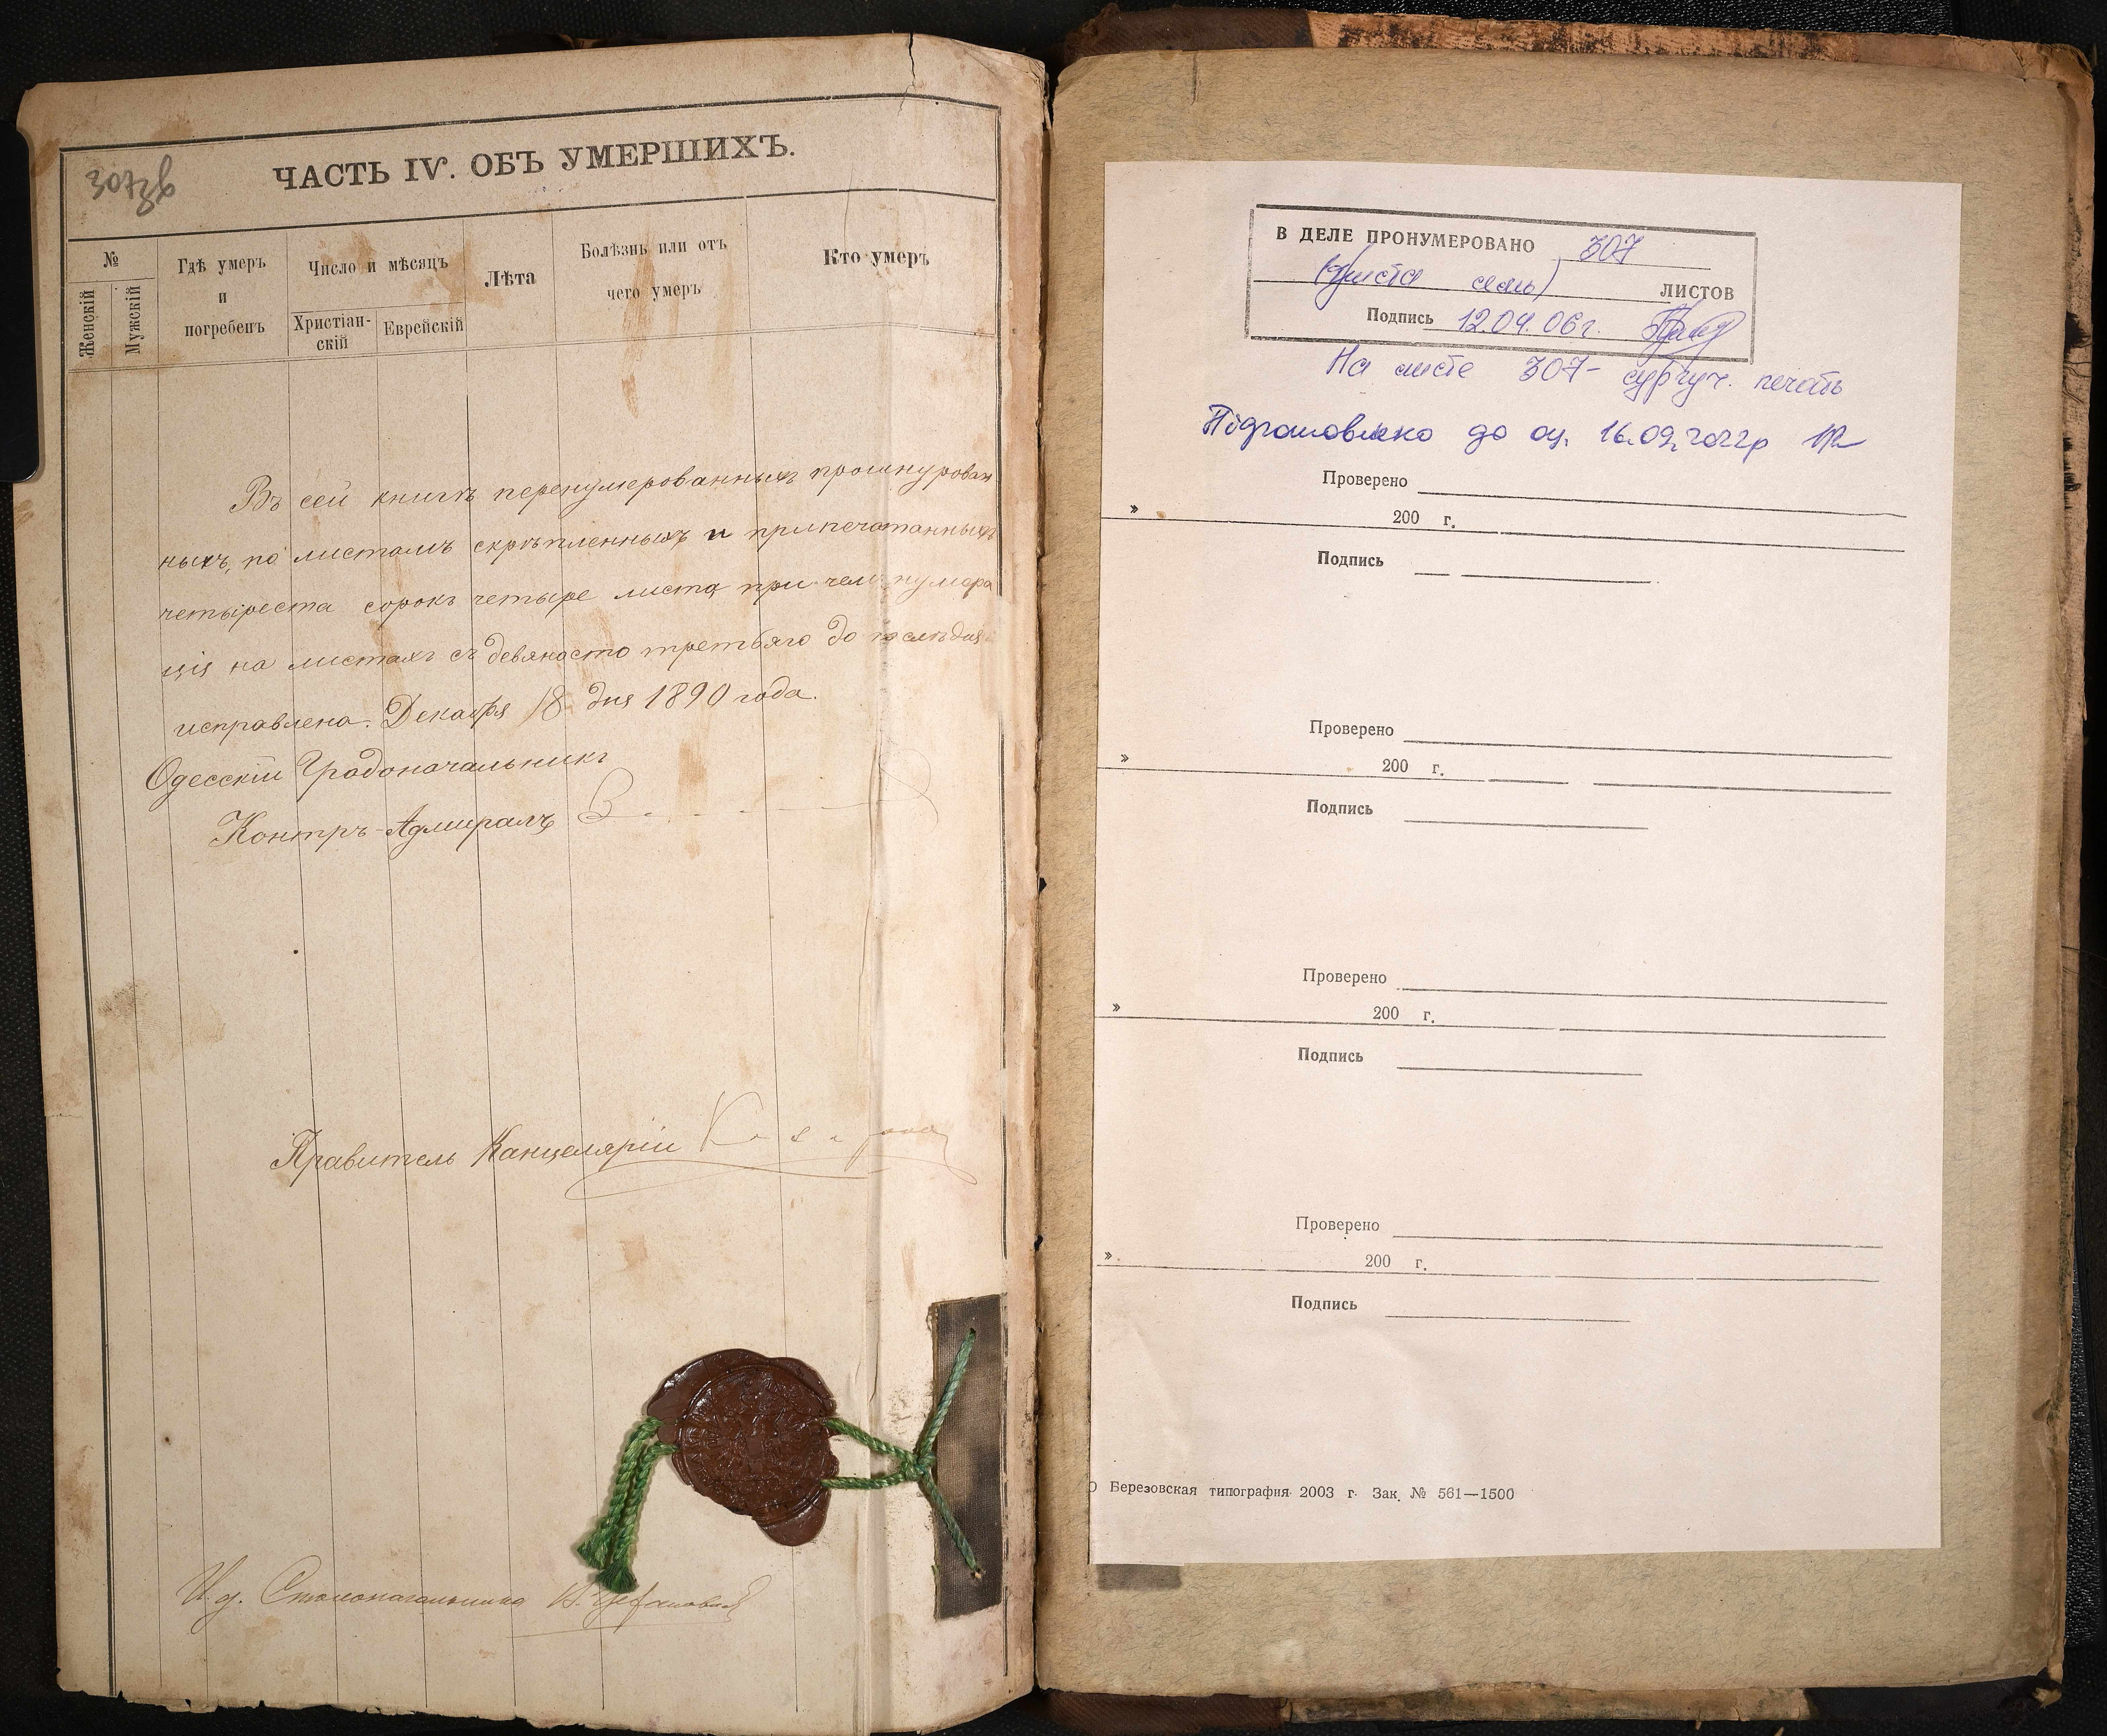 307зв
ЧАСТЬ IV. ОБЪ УМЕРШИХЪ.
№
Женскій
Мужскій
Гдѣ умеръ
и
погребенъ
Число и мѣсяцъ
Христіан-
скій
Еврейскій
Лѣта
Болѣзнь или отъ
чего умеръ
Кто умеръ
Въ сей книгѣ перенумерованныхъ прошнурован
ныхъ, по листамъ скрѣпленныхъ и припечатанныхъ
четыреста сорокъ четыре листа при чемъ нумера
ція на листахъ съ девяносто третьяго до послѣдня
исправлена. Декабря 18 дня 1890 года.
Одесскій Градоначальникъ
Контръ-Адмиралъ
Правитель Канцеляріи
И. д. Столоначальника
В ДЕЛЕ ПРОНУМЕРОВАНО 307
(триста семь) ЛИСТОВ
Подпись 12.04.06г.
На листе 307- сургуч. печать
Підготовлено до оц. 16.09.2022р
Проверено
» 200 г.
Подпись
Проверено
» 200 г.
Подпись
Проверено
» 200 г.
Подпись
Проверено
» 200 г.
Подпись
О Березовская типография 2003 г. Зак. № 561—1500